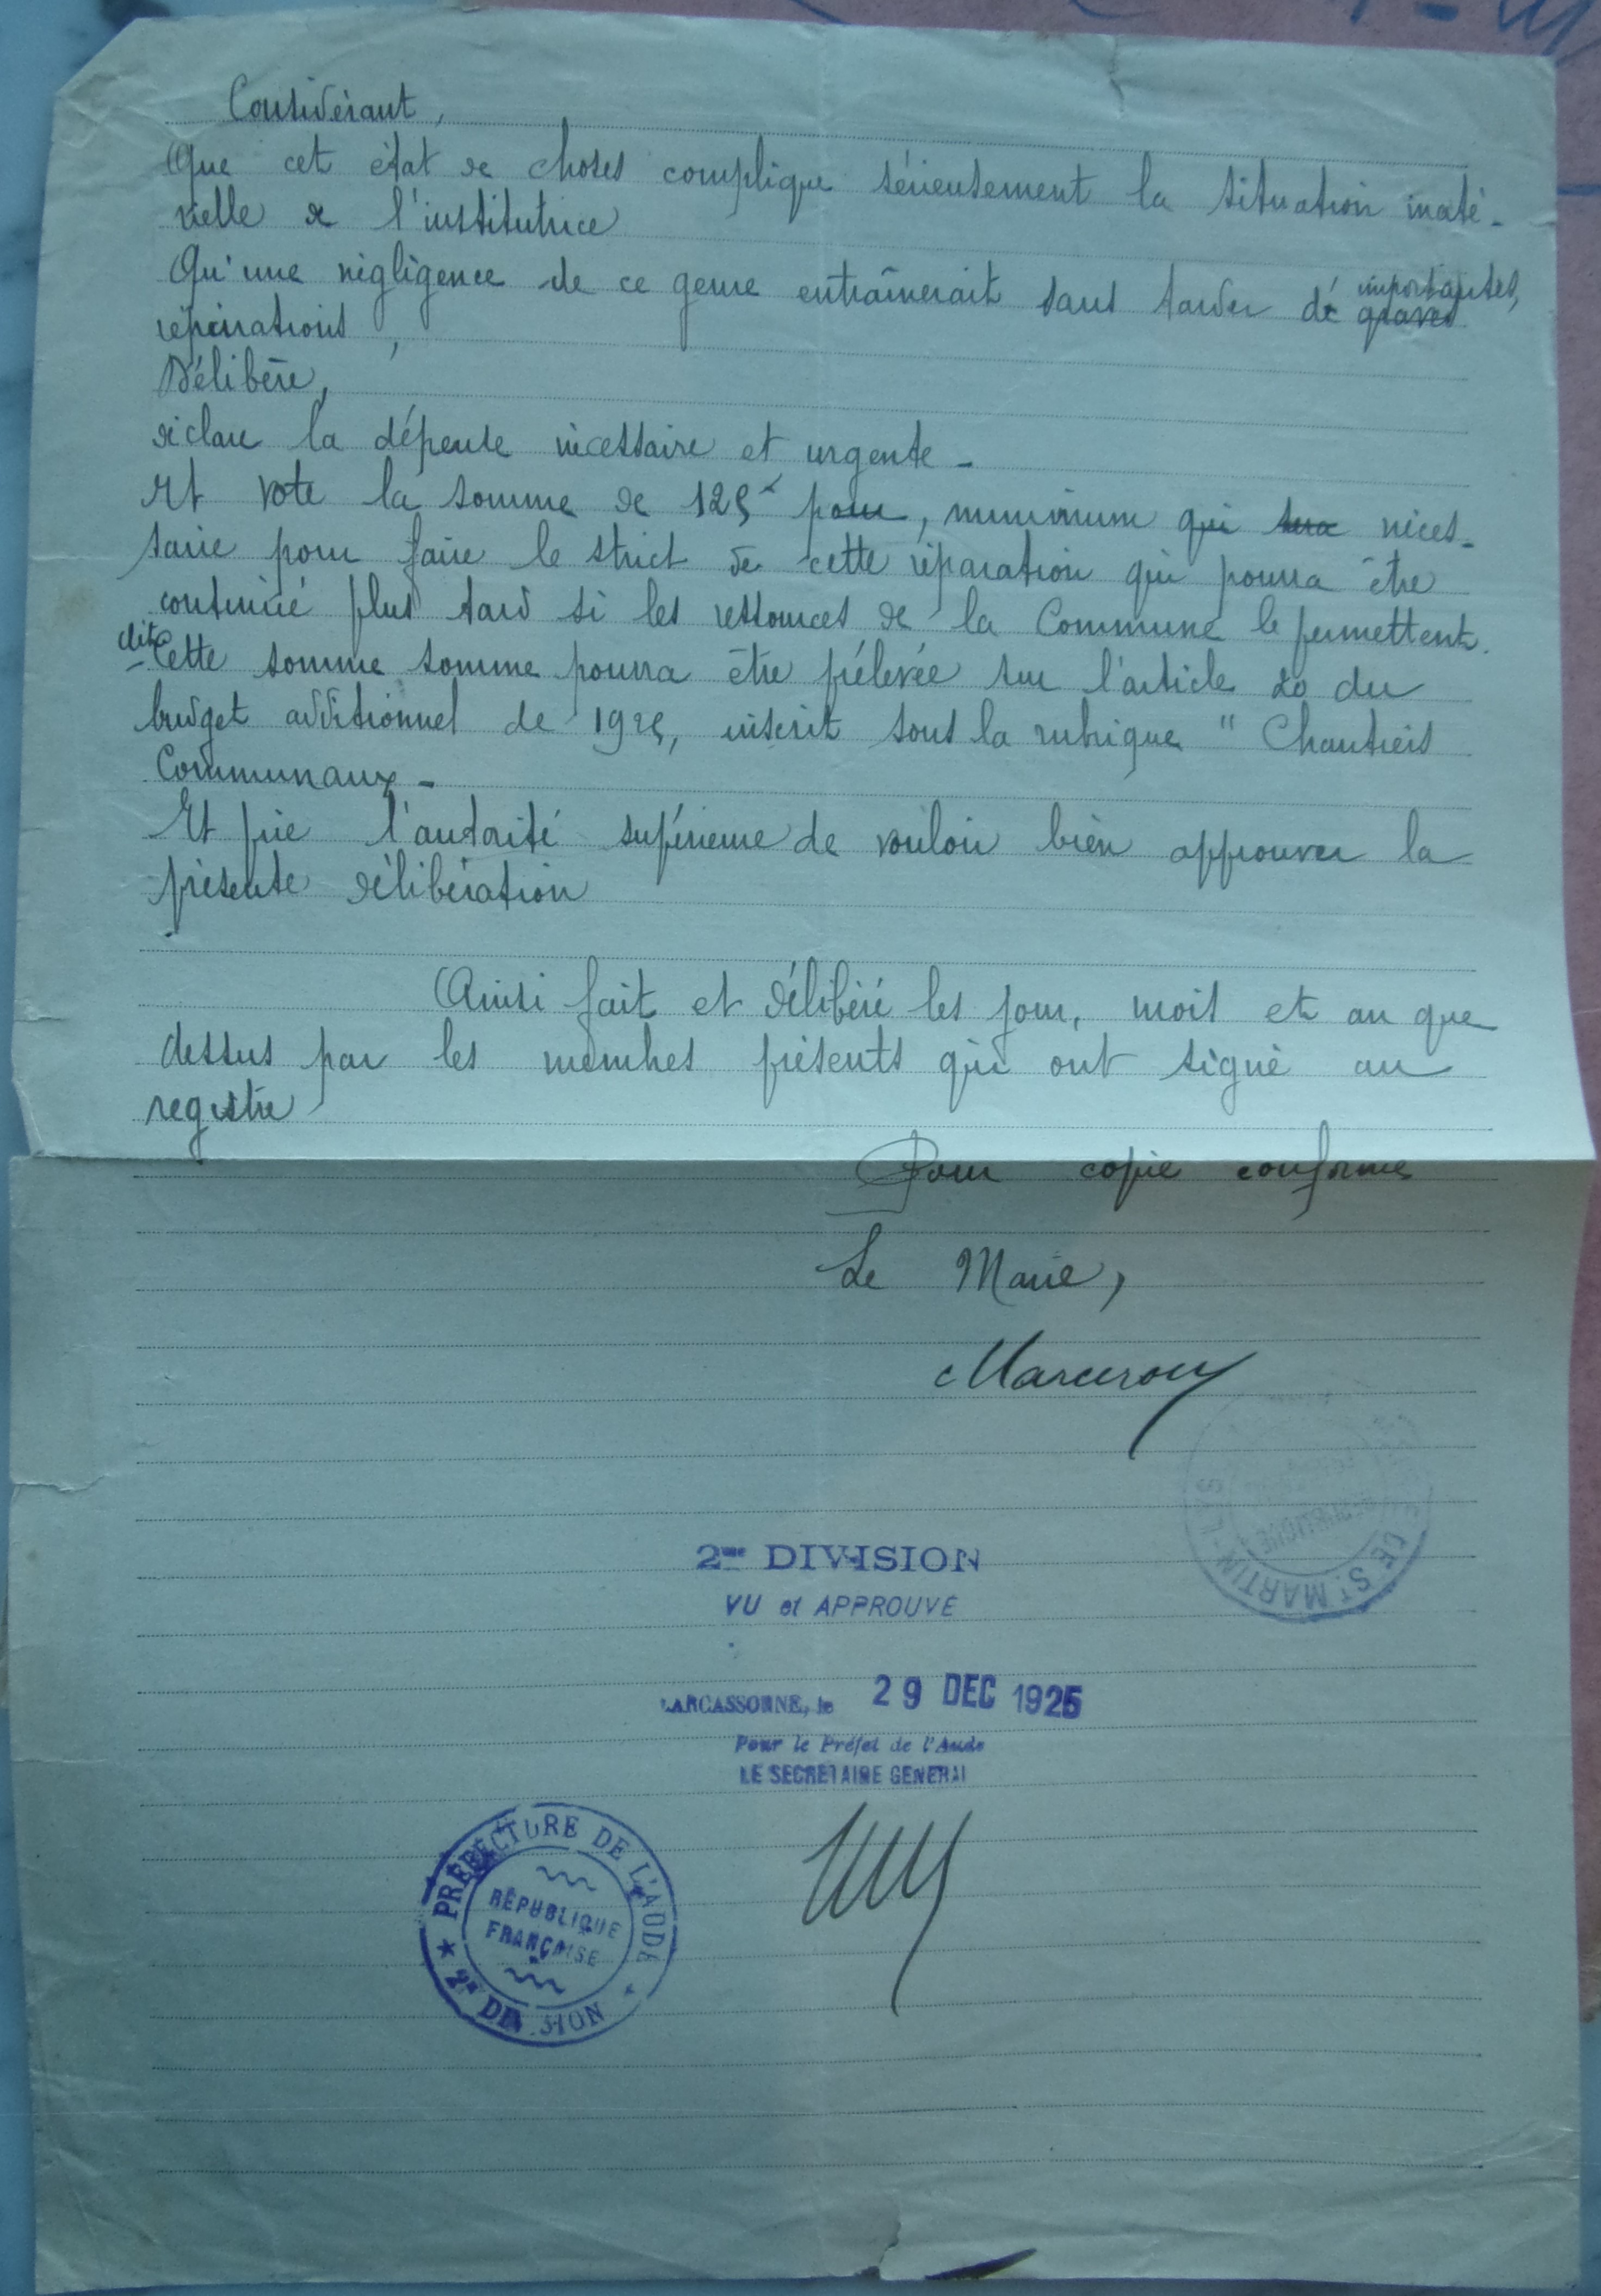 Considérant,
Que cet état de choses complique sérieusement la situation maté-
rielle de l'institutrice
Qu'une négligence de ce genre entraînerait sans tarder de graves importantes,
réparations,
Délibère,
déclare la dépense nécessaire et urgente -
Et vote la somme de 125 f pour, minimum qui sera néces-
saire pour faire le strict de cette réparation qui pourra être
continué plus tard si les ressources de la Commune le permettent.
dite
Cette somme somme pourra être prélevée sur l'article 20 du
budget additionnel de 1925, inscrit sous la rubrique " Chantiers
Communaux -
Et prie l'autorité supérieure de vouloir bien approuver la
présente délibération
Ainsi fait et délibéré les jour, mois et an que
dessus par les membres présents qui ont signé au
registre
Pour copie conforme
Le Maire,
Marcerou
2me DIVISION
VU et APPROUVÉ
CARCASSONNE, le 29 DEC 1925
Pour le Préfet de l'Aude
LE SECRETAIRE GENERAL
PRÉFECTURE DE L'AUDE
RÉPUBLIQUE
FRANÇAISE
2e DIVISION
DE ST MARTIN